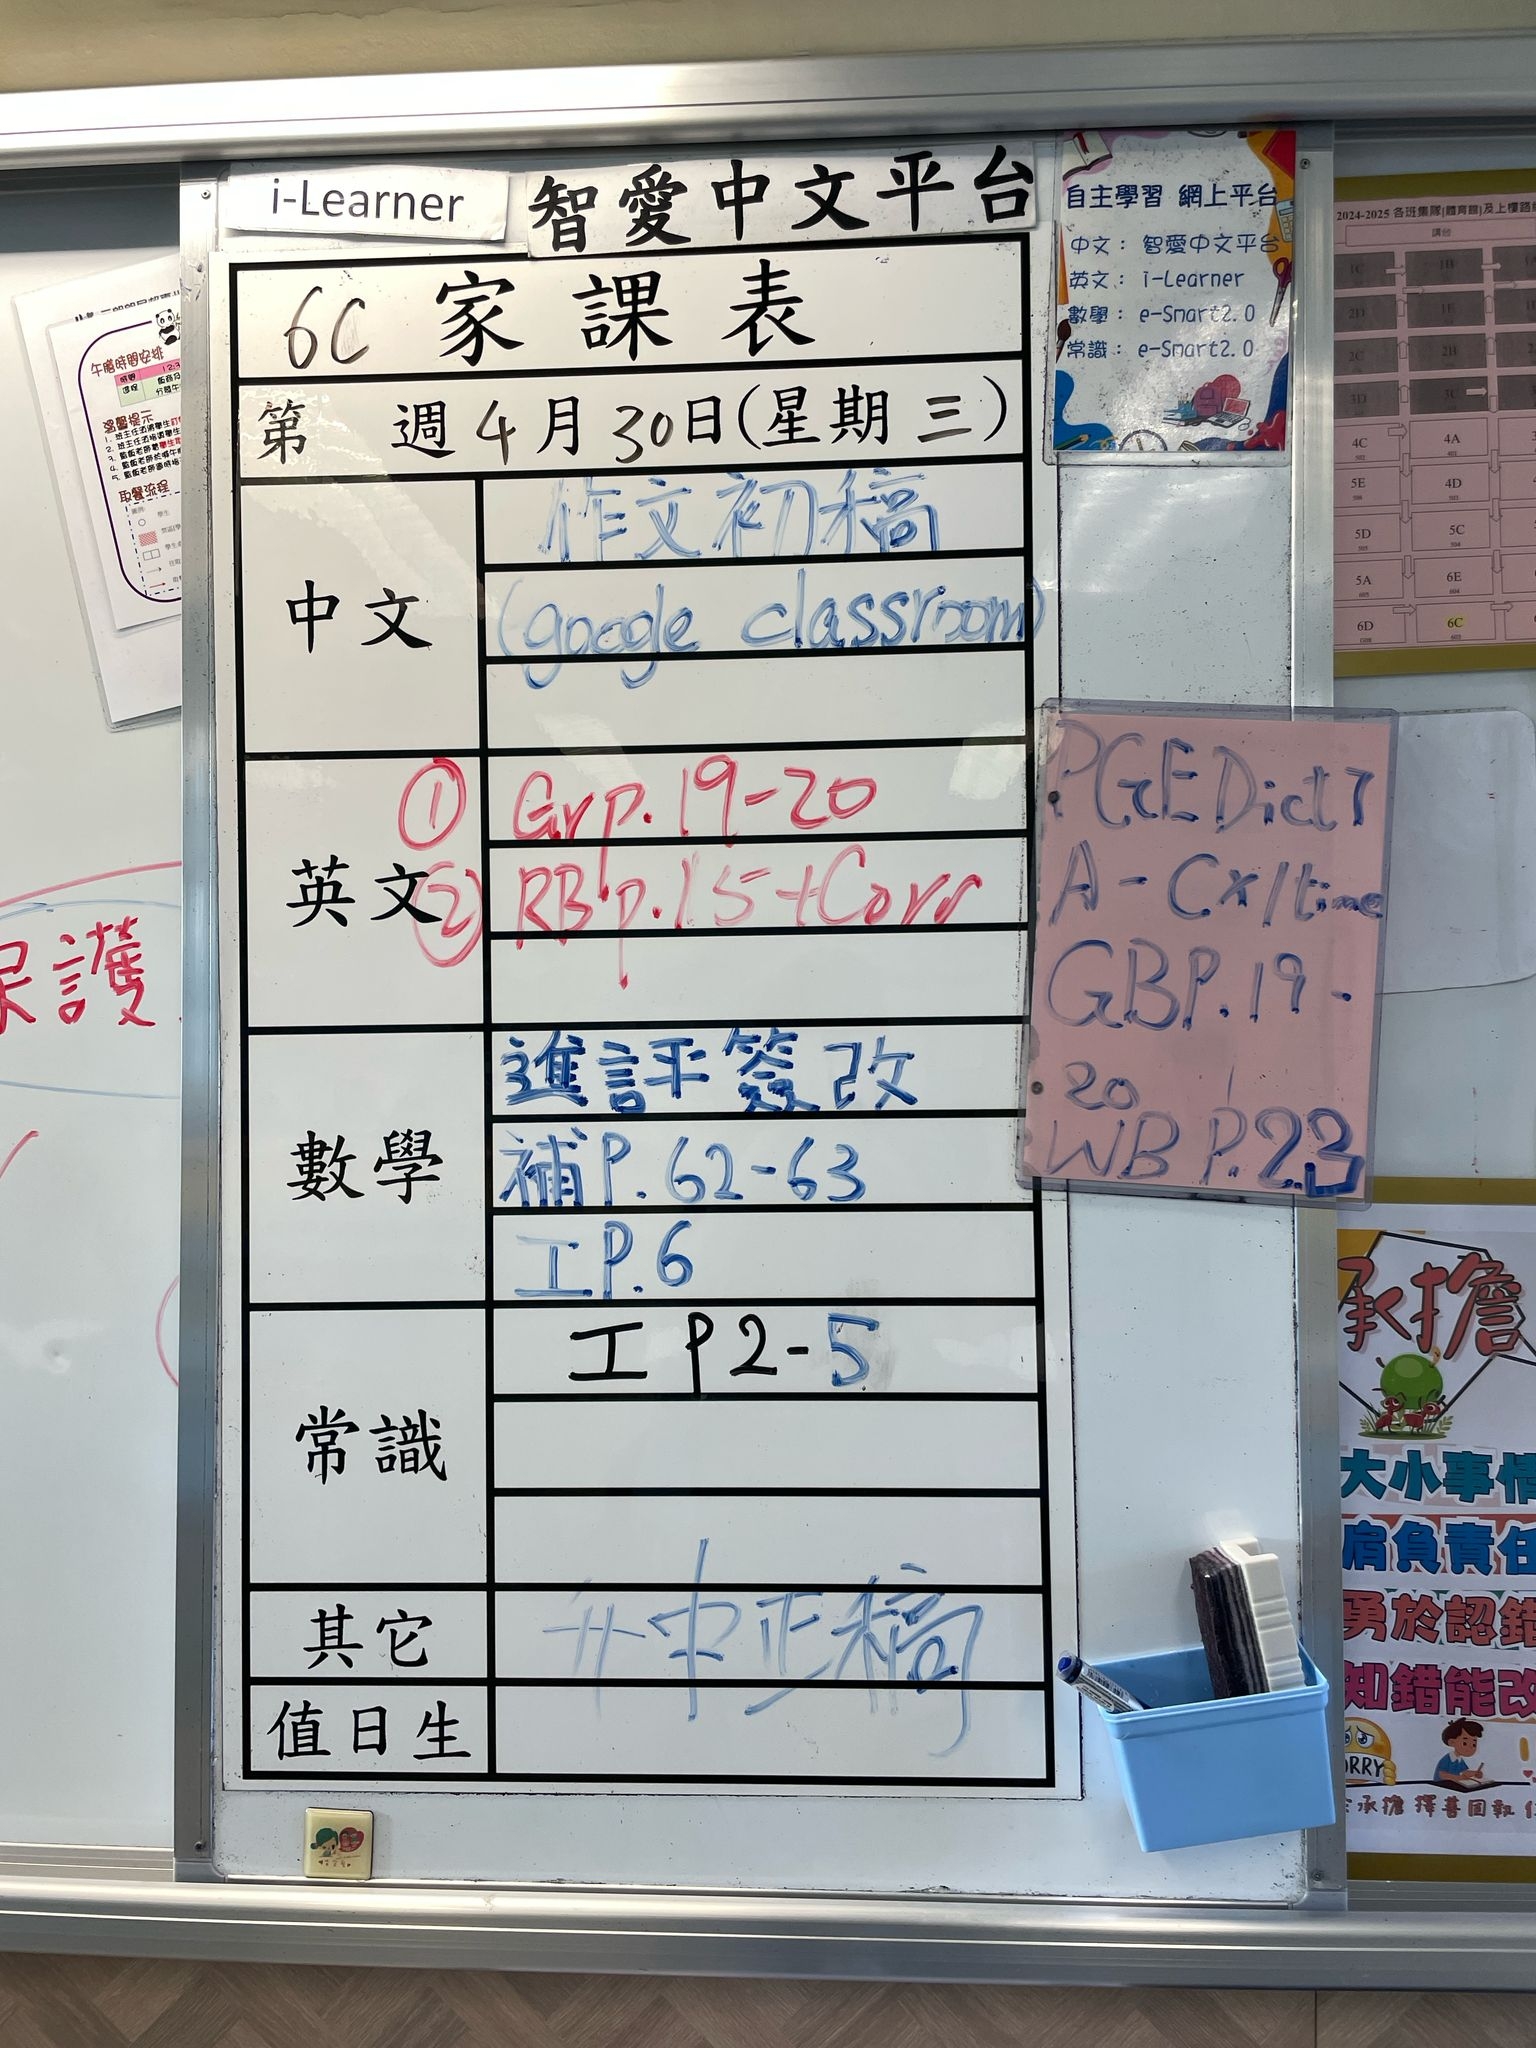 i-Learner
智愛中文平台
6C 家課表
第 週 4月30日(星期三)
中文
作文初稿
(google classroom)
英文
① Gr p.19-20
② RB p.15+Corr
數學
進評簽改
補P.62-63
工P.6
常識
工 P 2-5
其它
#中正稿
值日生
自主學習 網上平台
中文： 智愛中文平台
英文： i-Learner
數學： e-Smart2.0
常識： e-Smart2.0
PGE Dict 7
A - Cx/time
GBP.19-
20
WB P.23
午膳時間安排
時間
溫馨提示
取餐流程
學生
保護
2024-2025 各班集隊(體育館)及上樓路線
講台
1C 1B
2D 1E
2C 2B
3D 3C
4C 4A
5E 4D
5D 5C
5A 6E
6D 6C
承擔
大小事情
肩負責任
勇於認錯
知錯能改
承擔 擇善固執